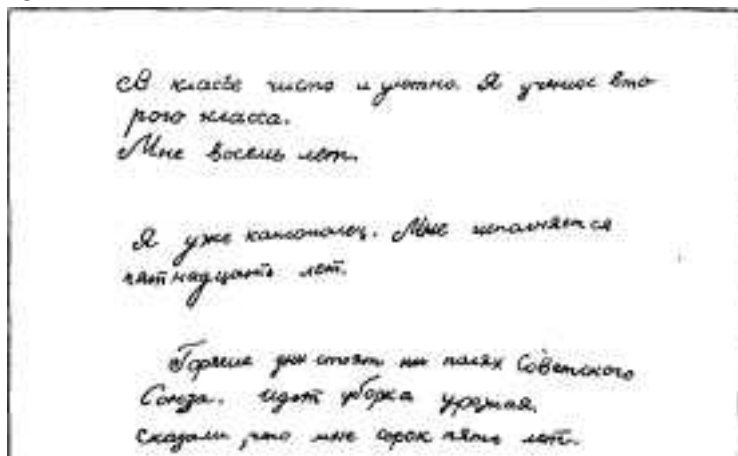 В классе чисто и уютно. Я ученик вто
рого класса.
Мне восемь лет.
Я уже комсомолец. Мне исполняется
пятнадцать лет.
Горячие дни стоят на полях Советского
Союза. Идёт уборка урожая.
Сказали, что мне сорок пять лет.